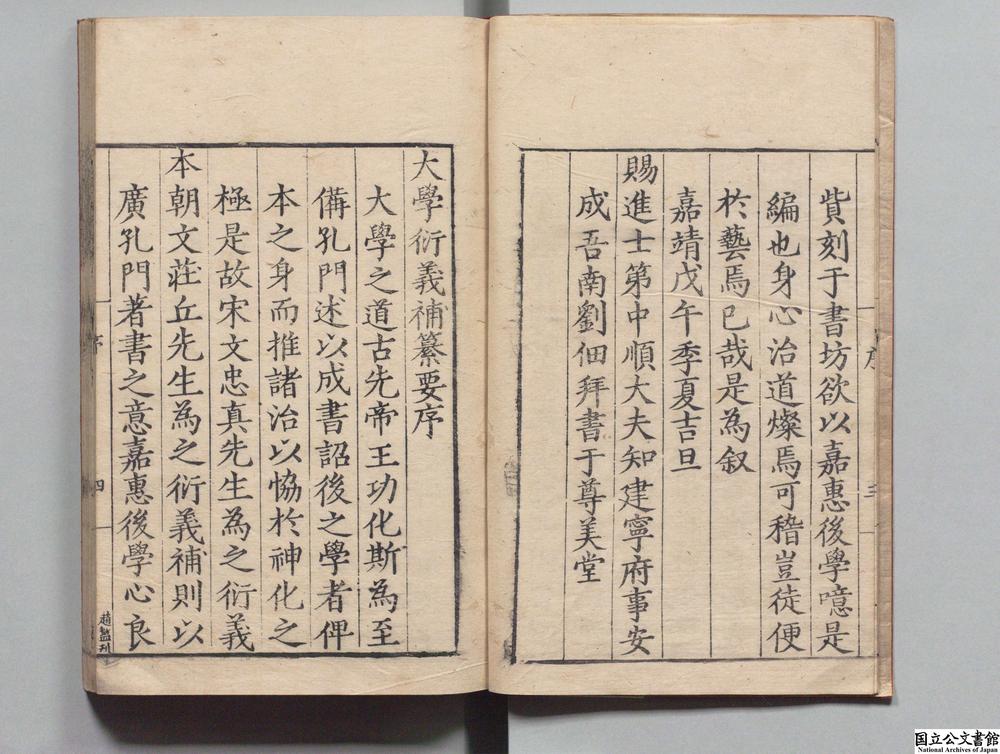 貲刻于書坊欲以嘉惠後學噫是
編也身心治道燦焉可稽豈徒便
於藝焉已哉是為叙
嘉靖戊午季夏吉旦
賜進士第中順大夫知建寧府事安
成吾南劉佃拜書于尊美堂
大學衍義補纂要序
大學之道古先帝王功化斯為至
備孔門述以成書詔後之學者俾
本之身而推諸治以恊於神化之
極是故宋文忠真先生為之衍義
本朝文莊丘先生為之衍義補則以
廣孔門著書之意嘉惠後學心良
序
三
序
四
国立公文書館
National Archives of Japan